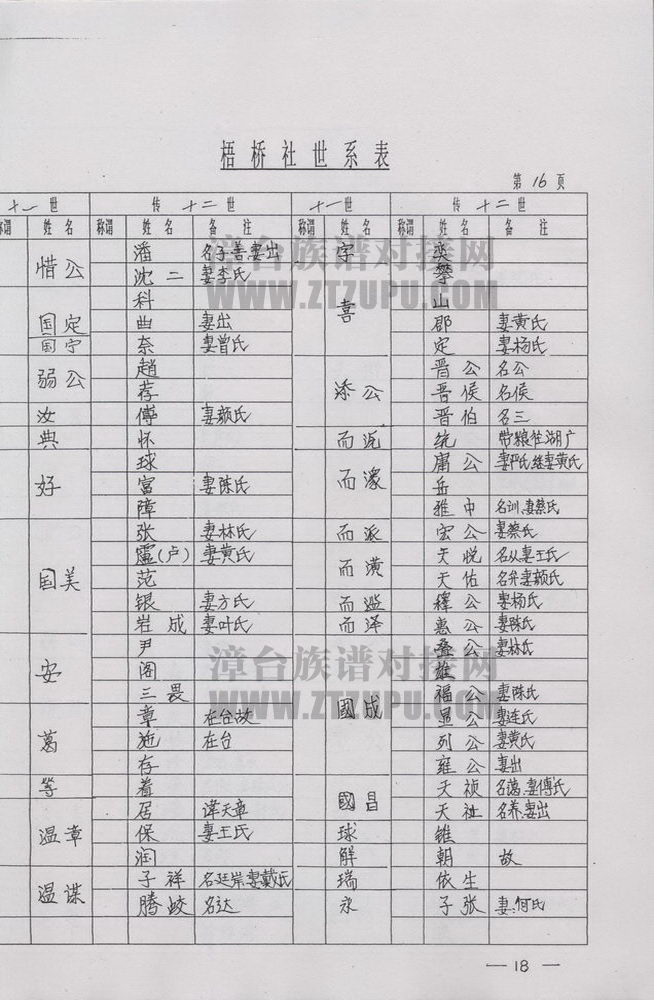 梧桥社世系表
第16页
十一世 传十二世 十一世 传十二世
称谓 姓名 称谓 姓名 备注 称谓 姓名 称谓 姓名 备注
惜公 潘 名子善妻出 字 奕
沈二 妻李氏 攀
科 喜 山
国定 曲 妻出 郡 妻黄氏
国宁 奈 妻曾氏 定 妻杨氏
弱公 趙 添公 晋公 名公
荐 晋侯 名侯
汝 傅 妻颜氏 晋伯 名三
典 怀 而 统 带粮往湖广
好 球 而濠 庸公 妻严氏继妻黄氏
富 妻陈氏 岳
障 雅中 名训妻蔡氏
国美 张 妻林氏 而派 宏公 妻蔡氏
(卢) 妻黄氏 而潢 天悦 名从妻王氏
范 天佑 名弁妻颜氏
银 妻方氏 而滥 釋公 妻杨氏
岩成 妻叶氏 而泽 惠公 妻陈氏
安 尹 國成 叠公 妻林氏
阁 雄
三畏 福公 妻陈氏
葛 章 在台故 显公 妻连氏
施 在台 列公 妻黄氏
存 雍公 妻出
等 着 國昌 天祯 名蔼妻傅氏
温章 居 讳天章 天祉 名养妻出
保 妻王氏 球 锥
润 解 朝 故
温谋 子祥 名廷岸妻戴氏 瑞 依生
腾蛟 名达 永 子张 妻何氏
漳台族谱对接网
WWW.ZTZUPU.COM
漳台族谱对接网
WWW.ZTZUPU.COM
— 18 —